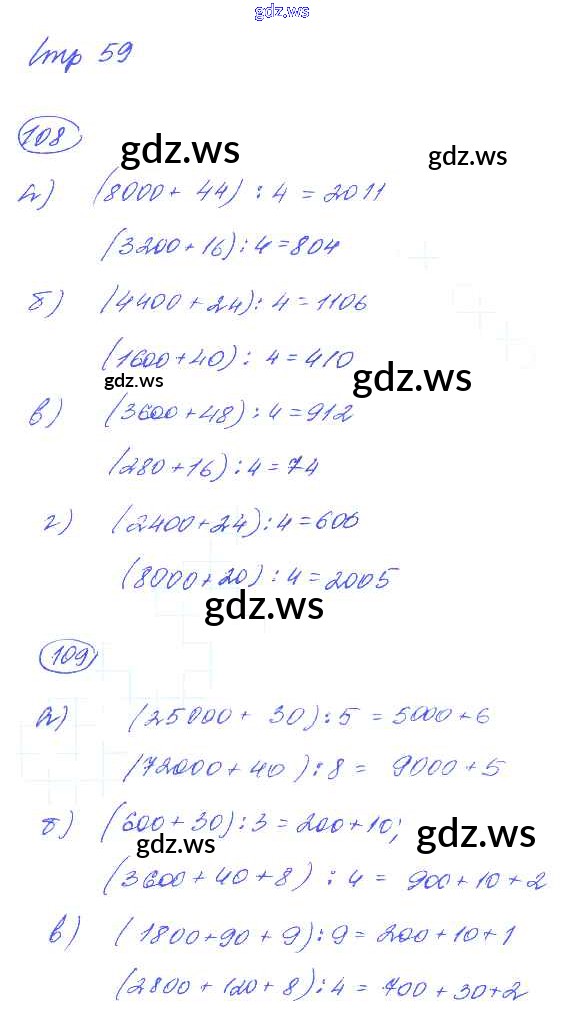 gdz.ws
стр 59
108
gdz.ws
gdz.ws
а) (8000 + 44) : 4 = 2011
(3200 + 16) : 4 = 804
б) (4400 + 24) : 4 = 1106
(1600 + 40) : 4 = 410
gdz.ws
gdz.ws
в) (3600 + 48) : 4 = 912
(280 + 16) : 4 = 74
г) (2400 + 24) : 4 = 606
(8000 + 20) : 4 = 2005
gdz.ws
109
а) (25000 + 30) : 5 = 5000 + 6
(72000 + 40) : 8 = 9000 + 5
б) (600 + 30) : 3 = 200 + 10;
gdz.ws
gdz.ws
(3600 + 40 + 8) : 4 = 900 + 10 + 2
в) (1800 + 90 + 9) : 9 = 200 + 10 + 1
(2800 + 120 + 8) : 4 = 700 + 30 + 2